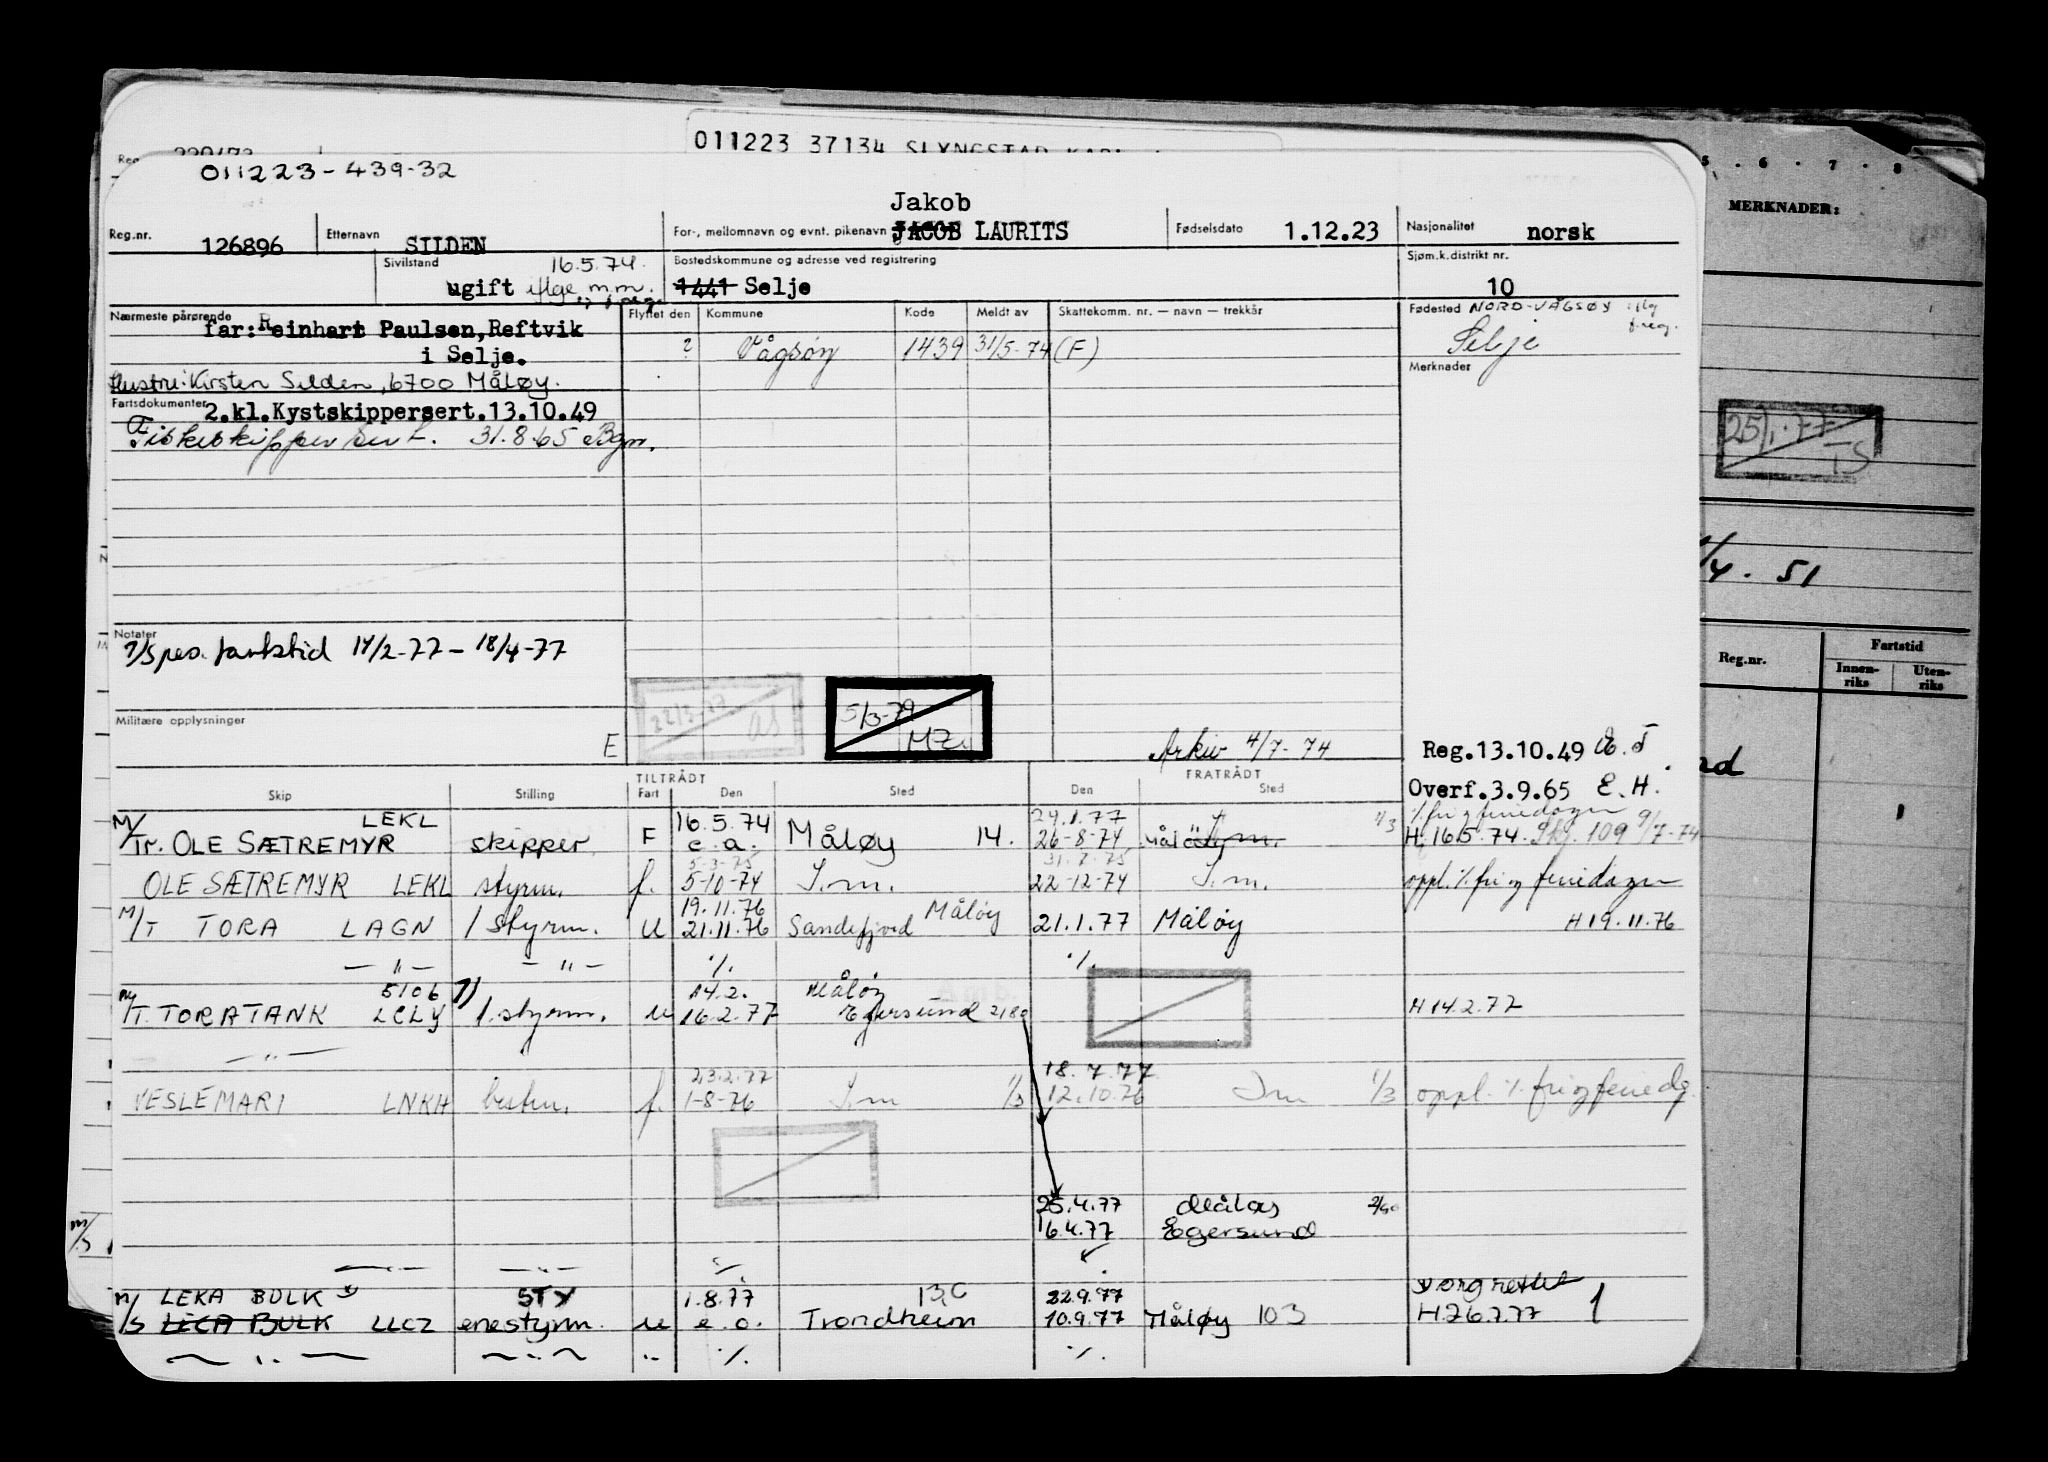 011223 37134 SLYNGSTAD KARL
011223-439-32
Jakob
Reg.nr. 126896 Etternavn SILDEN For-, mellomnavn og evnt. pikenavn JACOB LAURITS Fødselsdato 1.12.23 Nasjonalitet norsk
Sivilstand ugift 16.5.74. iflge m.m. Bostedskommune og adresse ved registrering 1441 Selje Sjøm.k.distrikt nr. 10
Nærmeste pårørende
far: Reinhart Paulsen, Reftvik
i Selje.
Hustru: Kirsten Silden, 6700 Måløy.
Flyttet den Kommune Kode Meldt av Skattekomm. nr. — navn — trekkår
? Vågsøy 1439 31/5-74 (F)
Fødested NORD-VÅGSØY iflg freg.
Selje
Merknader
Fartsdokumenter 2.kl.Kystskippersert.13.10.49
Fiskeskipper sert. 31.8.65 Bgn.
Notater
7/Spes. fartstid 14/2-77 - 18/4-77
Militære opplysninger
E
22/3-77 as
5/3-79 MZ.
Arkiv 4/7-74
Reg.13.10.49
Overf.3.9.65 E.H.
TILTRÅDT FRATRÅDT
Skip Stilling Fart Den Sted Den Sted
M/ LEKL 16.5.74 24.1.77 1/3 % fri og feriedager
Tr. OLE SÆTREMYR skipper F e.o. Måløy 14. 26-8-74 Mål I.m. H.16.5.74. Skj. 109 9/7-74
5-3-75 31.7.75
OLE SÆTREMYR LEKL styrm. f. 5-10-74 I.m. 22-12-74 I.m. oppl. % fri og feriedager
19.11.76 Måløy
M/T TORA LAGN 1 styrm. U 21.11.76 Sandefjord 21.1.77 Måløy H 19.11.76
— " — — " — %. %.
5106 7) 14.2. Måløy
M/T. TORATANK LCLY 1. styrm. u 16.2.77 Egersund 2180 H 14.2.77
— " —
23.2.77 18.4.77
VESLEMARI LNKH bestm. f. 1-8-76 I.m 1/3 12.10.76 I m 1/3 oppl. % fri og feriedg.
25.4.77 Måløy 2/80
16.4.77 Egersund
— " — — " — %
LEKA BULK x) STY 1.8.77 13,C 22.9.77 x) org rettet
M/S LECA BULK LLCZ enestyrm. u e.o. Trondheim 10.9.77 Måløy 103 H 26.7.77 1
— " — — " — " %. %.
5 . 6 . 7 . 8
MERKNADER:
25/1.77 TS
/4. 51
Reg.nr. Fartstid
Innen-riks Uten-riks